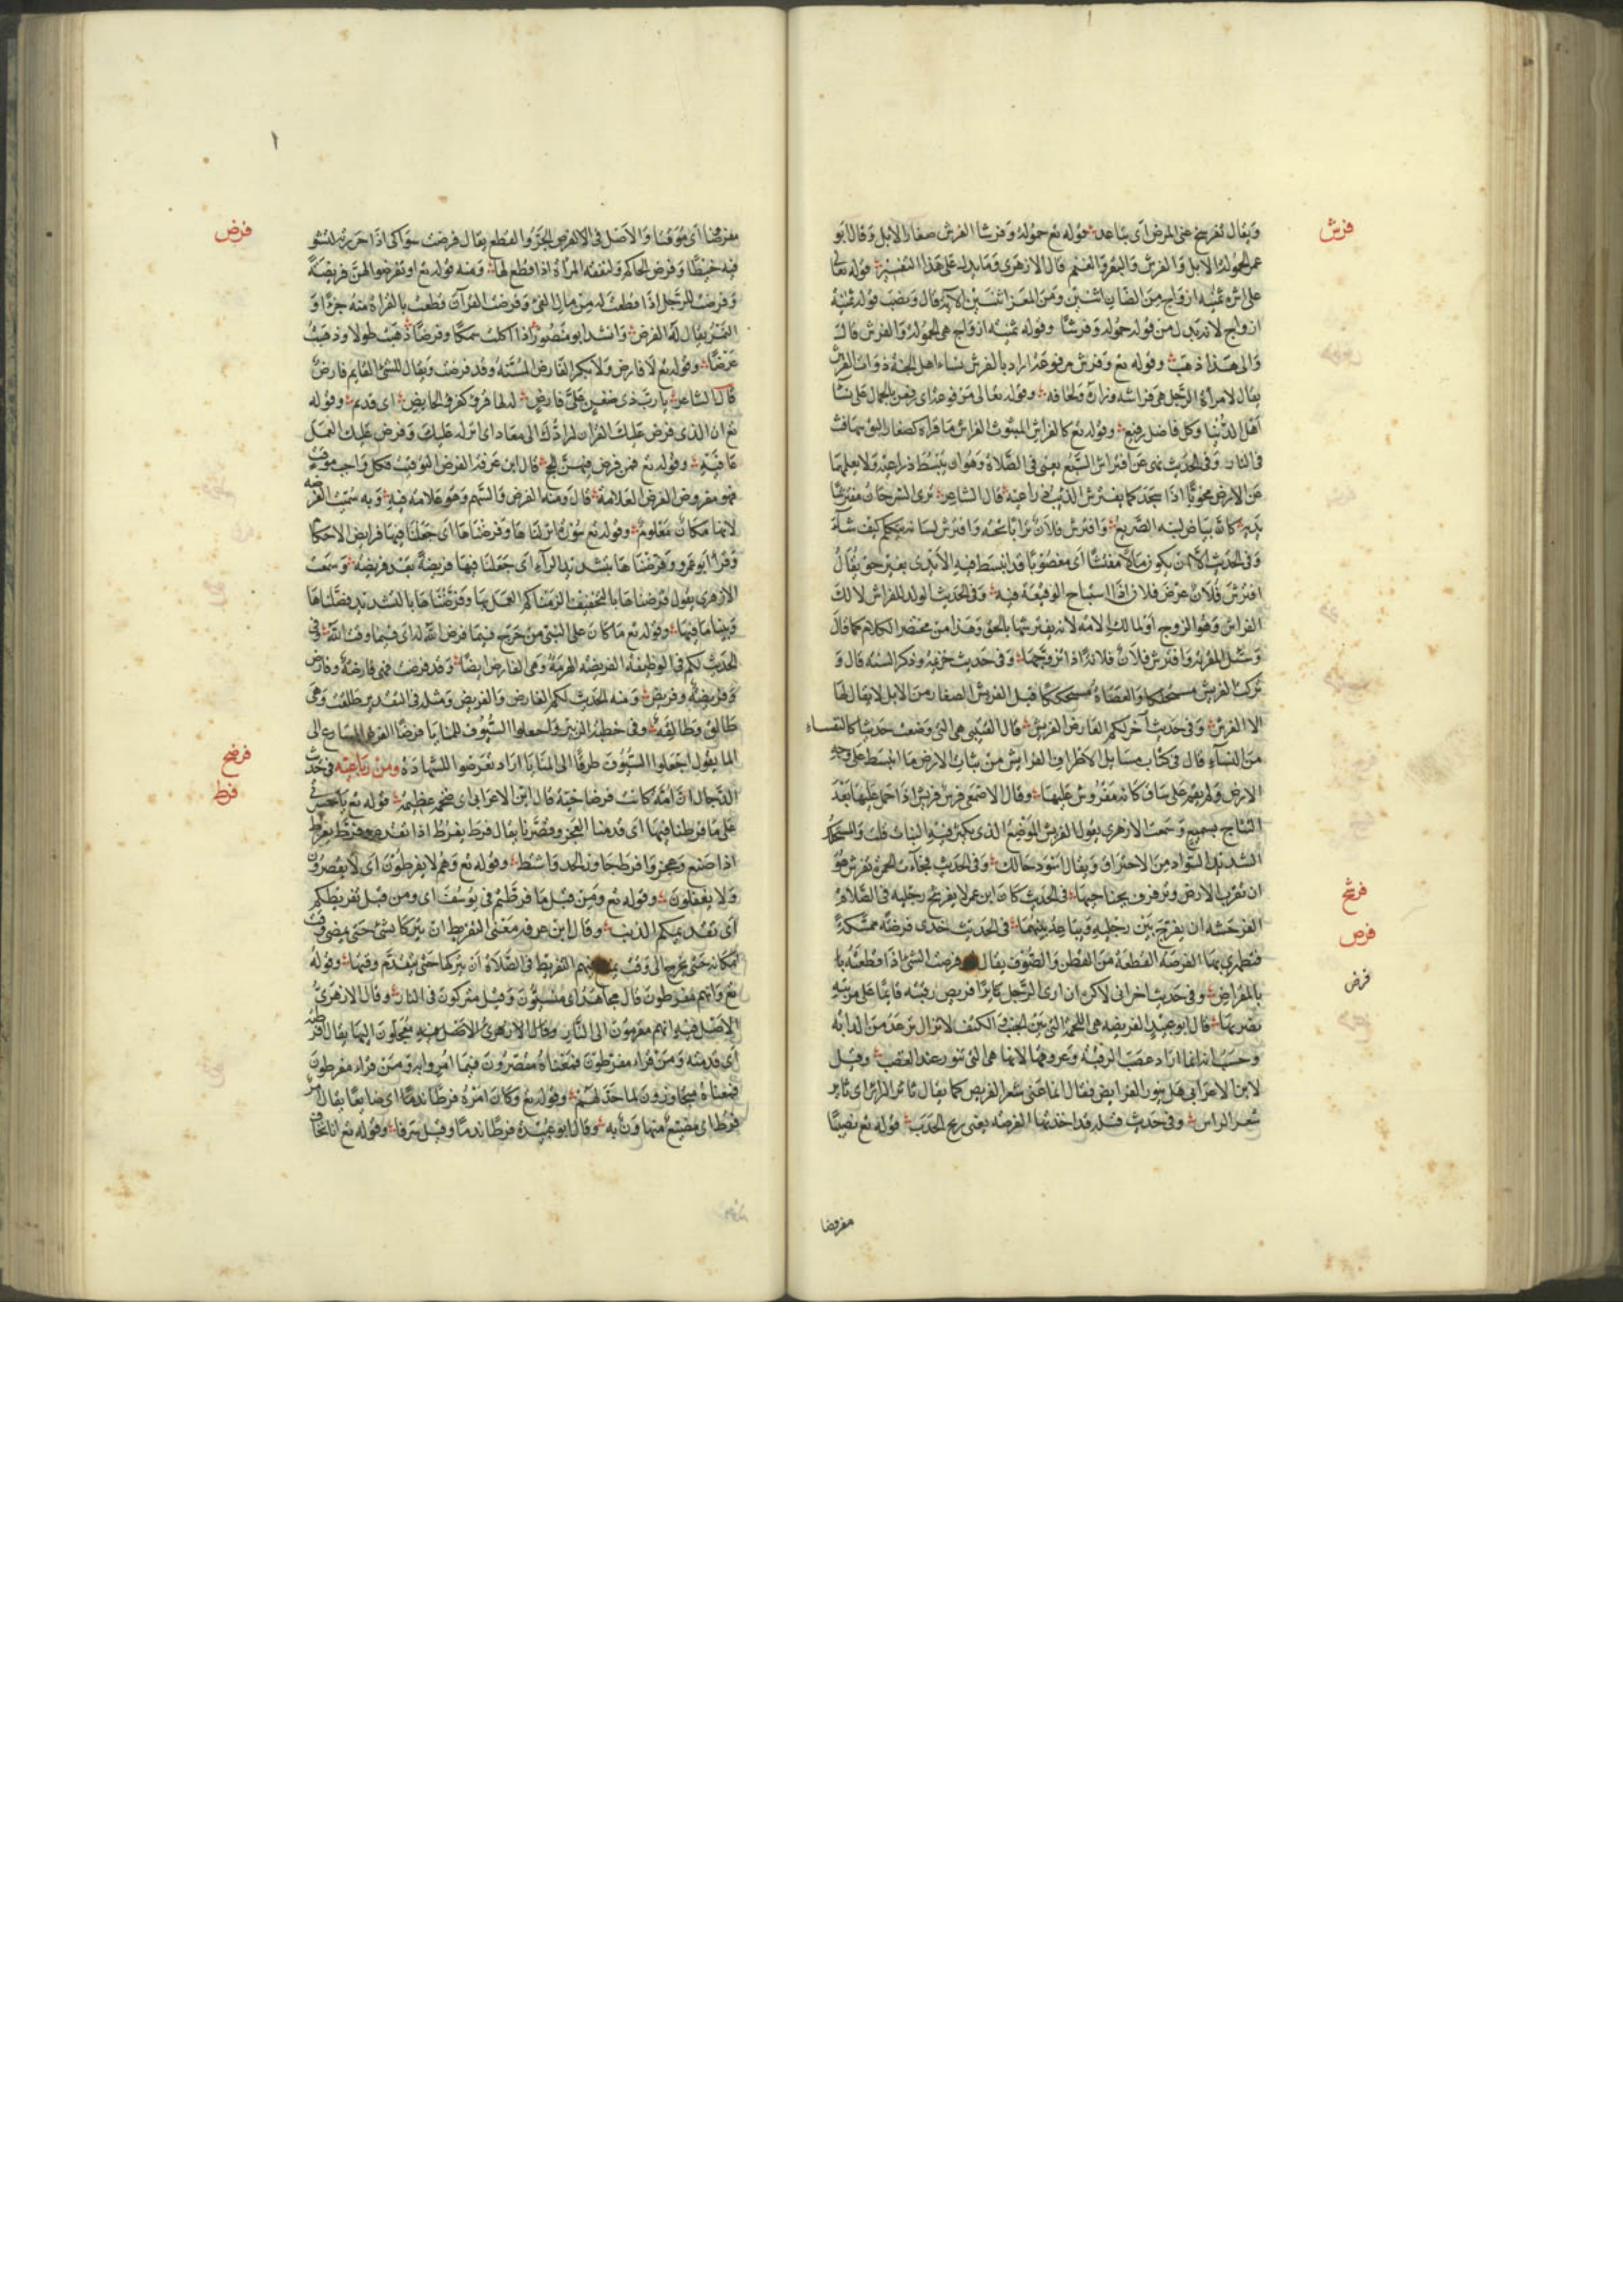 فرش
ويقال تفرسخ عنى المرض اى تباعد قوله تع حمولة وفرشا الفرش صغار الابل وقال ابو
عمر الحمولة الابل والفرش والبقر والغنم قال الازهرى وما يدل على هذا التفسير قوله تعالى
على اثره ثمنية ازواج من الضان اثنين ومن المعز اثنين الآية قال ونصب قوله ثمنية
ازواج لانه بدل من قوله حمولة وفرشا وقوله ثمنية ازواج هى الحمولة والفرش قال
والى هذا ذهب وقوله تع وفرش مرفوعة اراد بالفرش نساء اهل الجنة ذوات الفرش
يقال لامراة الرجل هى فراشه وازاره ولحافه وقوله تعالى مرفوعة اى رفعن بالجمال على نسا
اهل الدنيا وكل فاضل رفيع وقوله تع كالفراش المبثوث الفراش ما تراه كصغار البق يتهافت
فى النار وفى الحديث نهى عن افتراش السبع يعنى فى الصلاة وهو ان يبسط ذراعيه ولا يقلهما
عن الارض مخويا اذا سجد كما يفترش الذيب ذراعيه قال الشاعر ترى السرحان مفترشا
يديه كان بياض لبته الصديع وافترش فلان ترابا تحته وافترش لسانه يتكلم كيف شاء
وفى الحديث الا ان يكون مالا مفترشا اى مغصوبا قد انبسط فيه الايدى بغير حق يقال
افترش فلان عرض فلان اذا استباح الوقيعة فيه وفى الحديث الولد للفراش لمالك
الفراش وهو الزوج او لمالك الامة لانه يفترشها بالحق وهذا من مختصر الكلام كما قال
وسئل القرية وافترش فلان فلانة اذا تزوجها وفى حديث خزيمة وذكر السنة قال و
تركت الفريش مسحنككا والعضاه مستحلكا قيل الفريش الصغار من الابل لا يقال لها
الا الفرش وفى حديث آخر لكم العارض الفريش قال القتيبى هى التى وضعت حديثا كالنفساء
من النساء قال فى كتاب مسايل الاظراف الفرايش من نبات الارض ما انبسط على وجه
الارض ولم يقم على ساق كانه مفروش عليها وقال الاصمعى فرس فريش اذا حمل عليها بعد
النتاج بسبع وسمعت الازهرى يقول الفريش الموضع الذى يكثر فيه النبات قلت والمستحلك
الشديد السواد من الاحتراق ويقال اسود حالك وفى الحديث فجاءت الحمرة تفرش هو
فرشح
ان تقرب الارض وترفرف بجناحيها فى الحديث كان ابن عمر لا يفرشح رجليه فى الصلاة
فرص
الفرشحة ان يفرج بين رجليه ويباعد بينهما فى الحديث خذى فرصة ممسكة
فتطهرى بها الفرصة القطعة من القطن والصوف يقال فرصت الشئ اذا قطعته با
بالمفراص وفى حديث اخر انى لاكره ان ارى الرجل ثائرا فريص رقبته قائما على مريته
يضربها قال ابو عبيد الفريصة هى اللحمة التى بين الجنب والكتف لا تزال ترعد من الدابة
وحسب انه انما اراد عصب الرقبة وعروقها لانها هى التى تثور عند الغضب وقيل
لابن الاعرابى هل يثور الفرايص فقال انما عنى شعر الفريص كما يقال ثائر الراس اى ثاير
فرض
شعر الراس وفى حديث قيلة قد اخذتها الفرصة يعنى ريح الحدب قوله تع نصيبا
مفروضا
فرض
مفروضا اى موقتا والاصل فى الفرض الحز والقطع يقال فرضت سواكى اذا حززته لتشد
فيه خيطا وفرض الحاكم النفقة المراة اذا قطع لها ومنه قوله تع او تفرضوا لهن فريضة
وفرضت للرجل اذا قطعت له من مال الفئ وفرضت القرآن قطعت بالقراة منه جزءا و
التمر يقال له الفرض وانشد ابو منصور اذا اكلت سمكا وفرضا ذهبت طولا وذهبت
عرضا وقوله تع لا فارض ولا بكر الفارض المسنة وقد فرضت ويقال للشئ القايم فارض
قال الشاعر يا رب ذى ضغن على فارض له قروء كقروء الحايض اى قديم وقوله
تع ان الذى فرض عليك القران لرادك الى معاد اى انزله عليك وفرض عليك العمل
بما فيه وقوله تع فمن فرض فيهن الحج قال ابن عرفة الفرض التوقيت فكل واجب موقت
فهو مفروض الفرض العلامة قال ومنه الفرض والسهم وهو علامة فيه وبه سميت الفرضه
لانها مكان معلوم وقوله تع سورة انزلناها وفرضناها اى جعلنا فيها فرايض الاحكا
وقرا ابو عمرو وفرضناها بتشديد الراء اى جعلنا فيها فريضة بعد فريضة وسمعت
الازهرى يقول فرضناها بالتخفيف الزمناكم العمل بها وفرضناها بالتشديد فصلناها
وبينا ما فيها وقوله تع ما كان على النبى من حرج فيما فرض الله له اى فيما وقت الله وفى
الحديث لكم فى الوظيفة الفريضة الهرمة وهى الفارض ايضا وقد فرضت فهى فارضة وفارض
وفريضة وفريض ومنه الحديث لكم الفارض والفريض ومثله فى التقدير طلقت وهى
طالق وطالقة وفى خطبة الزبير واجعلوا السيوف للمنايا فرضا الفرض المشارع الى
الما يقول اجعلوا السيوف طرقا الى المنايا اراد تعرضوا للشهادة ومن رباعيه فى حديث
فرضخ
الدجال ان امه كانت فرضاخية قال ابن الاعرابى اى ضخمة عظيمة قوله تع يا حسرتى
فرط
على ما فرطنا فيها اى قدمنا العجز وقصرنا يقال فرط يفرط اذا تقدم وفرط يفرط
اذا ضيع وعجز وافرط جاوز الحد واشتط وقوله تع وهم لا يفرطون اى لا يقصرون
ولا يغفلون وقوله تع ومن قبل ما فرطتم فى يوسف اى ومن قبل تفريطكم
اى تقديمكم الذنب وقال ابن عرفة معنى التفريط ان يترك الشئ حتى يمضى وقت
امكانه حتى يخرج الى وقت التفريط فى الصلاة ان يتركها حتى يتقدم وقتها وقوله
تع وانهم مفرطون قال مجاهد اى منسيون وقيل متركون فى النار وقال الازهرى
الاصل فيه انهم مقدمون الى النار وقال الازهرى الاصل فيه معجلون اليها يقال افرطته
اى قدمته ومن قراء مفرطون فمعناه مقصرون فيما امروا به ومن قراء مفرطون
فمعناه متجاوزون لما حد لهم وقوله تع وكان امره فرطا ندما اى ضايعا يقال امر
فرط اى مضيع متهاون به وقال ابو عبيدة فرطا ندما وقيل سرفا وقوله تع اننا نخاف